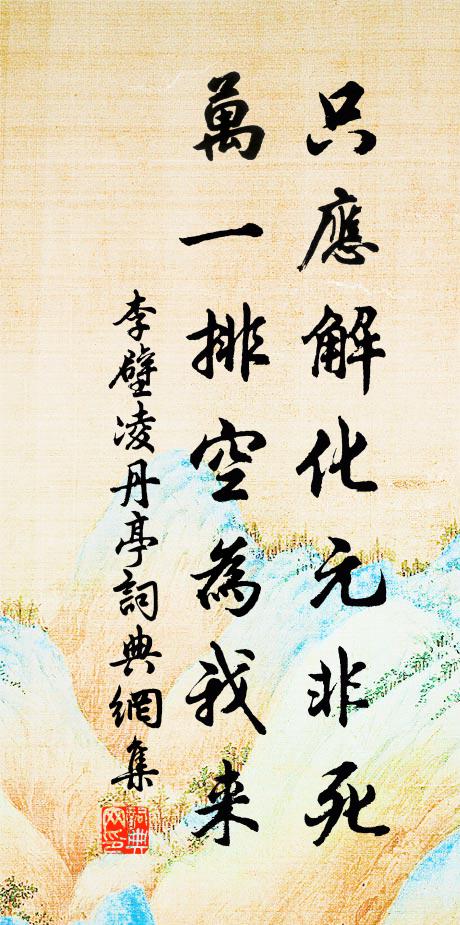 只應解化元非死
萬一排空為我来
李壁凌丹亭詞典網集
詞典
网印